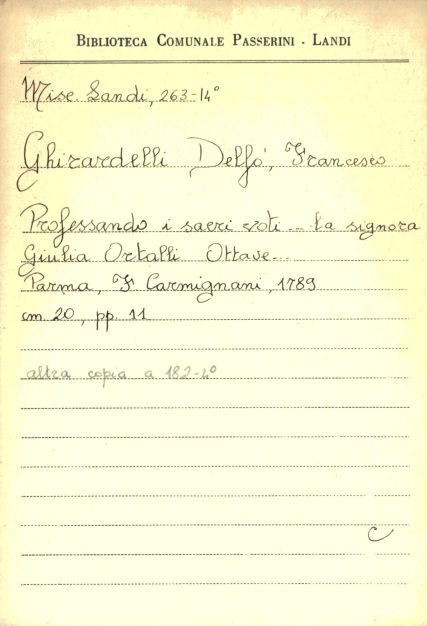 BIBLIOTECA COMUNALE PASSERINI - LANDI
Misc. Landi, 263-14°
Ghirardelli Delfò, Francesco
Professando i sacri voti... la signora
Giulia Ortalli Ottave...
Parma, F. Carmignani, 1789
cm 20, pp. 11
altra copia a 182-4°
C